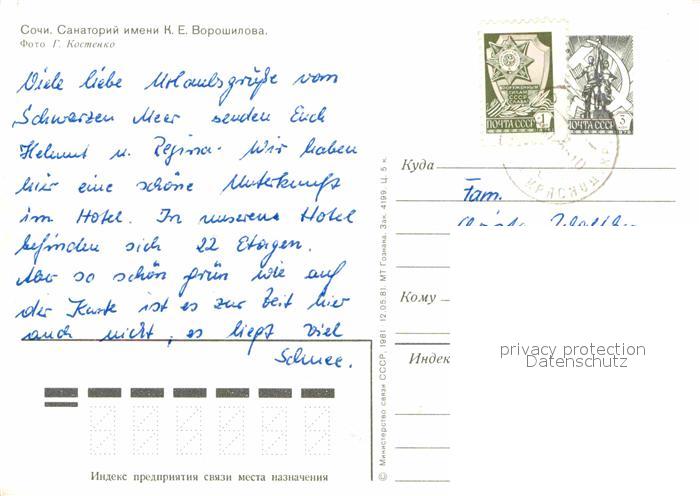 Сочи. Санаторий имени К. Е. Ворошилова.
Фото Г. Костенко
Viele liebe Urlaubsgrüße vom
Schwarzen Meer senden Euch
Helmut u. Regina. Wir haben
hier eine schöne Unterkunft
im Hotel. In unserem Hotel
befinden sich 22 Etagen.
Aber so schön grün wie auf
der Karte ist es zur Zeit hier
auch nicht, es liegt viel
Schnee.
Индекс предприятия связи места назначения
© Министерство связи СССР, 1981 12.05.81. МТ Гознака. Зак. 4199. Ц. 5 к.
ПОЧТА СССР 1
ПОЧТА СССР 3
Куда
Fam.
Кому
Индекс
privacy protection
Datenschutz